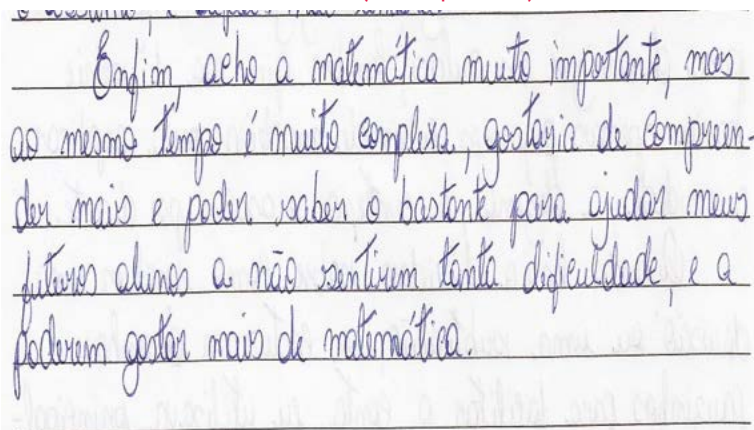 Enfim, acho a matemática muito importante, mas
ao mesmo tempo é muito complexa, gostaria de compreen-
der mais e poder saber o bastante para ajudar meus
futuros alunos a não sentirem tanta dificuldade, e a
poderem gostar mais de matemática.